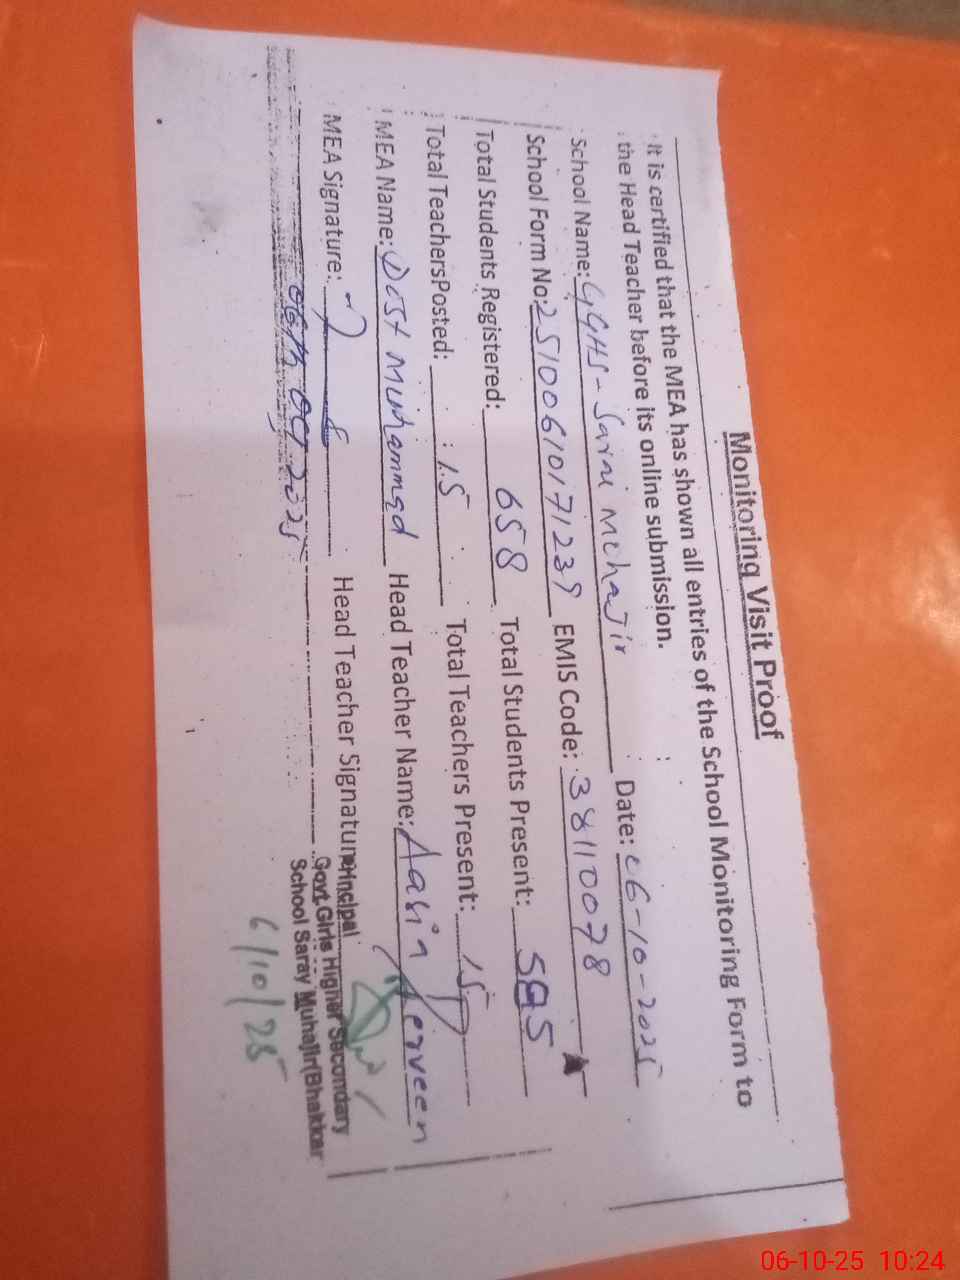 Monitoring Visit Proof
It is certified that the MEA has shown all entries of the School Monitoring Form to
the Head Teacher before its online submission.
School Name: GGHS - Sarai Mohajir Date: 06-10-2025
School Form No: 25100610171239 EMIS Code: 38110078
Total Students Registered: 658 Total Students Present: 585
Total TeachersPosted: 15 Total Teachers Present: 15
MEA Name: Dost Muhammad Head Teacher Name: Aasia Perveen
MEA Signature: Head Teacher Signature
06th Oct 2025
Principal
Govt.Girls Higher Secondary
School Saray Muhajir(Bhakkar
6/10/25
06-10-25 10:24